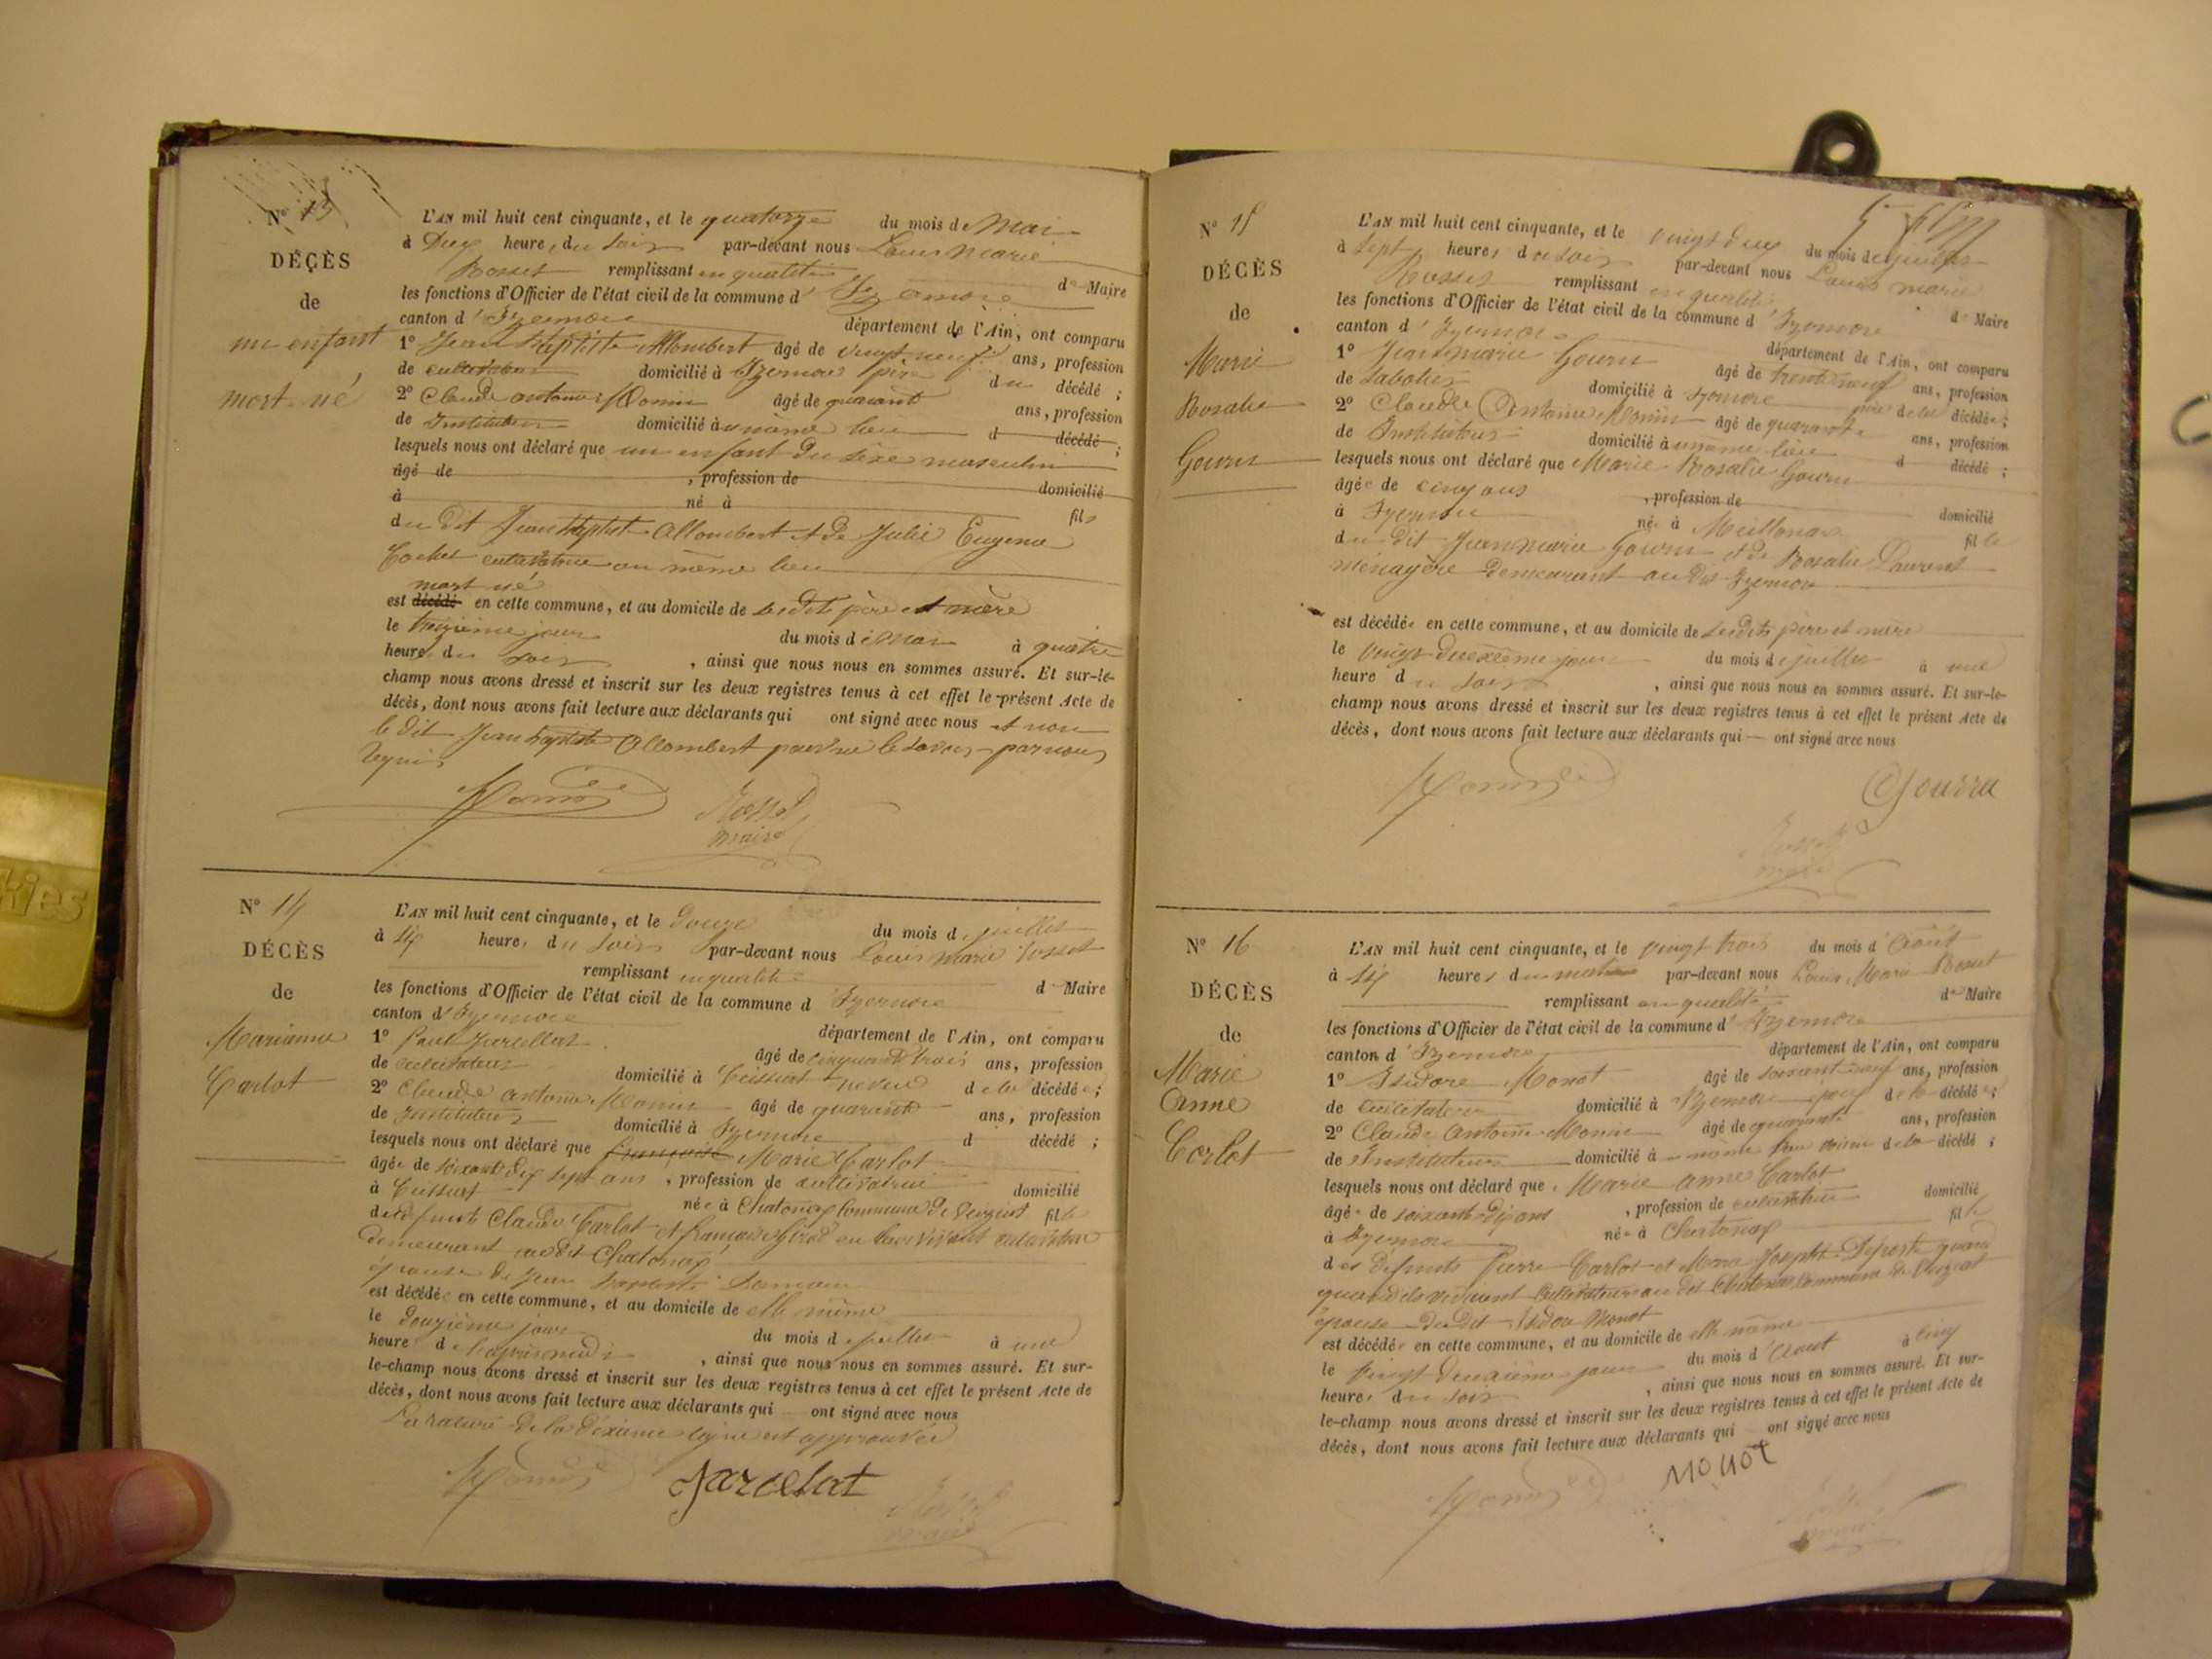 N° 13
DÉCÈS
de
un enfant
mort-né
L'AN mil huit cent cinquante, et le quatorze du mois de Mai
à Deux heures du soir par-devant nous Louis Marie
Rosset remplissant en qualité de Maire
les fonctions d'Officier de l'état civil de la commune d'Izernore
canton d'Izernore département de l'Ain, ont comparu
1° Jean Baptiste Allombert âgé de vingt neuf ans, profession
de cultivateur domicilié à Izernore père du décédé ;
2° Claude antoine Monin âgé de quarante ans, profession
de Instituteur domicilié au même lieu d décédé ;
lesquels nous ont déclaré que un enfant du sexe masculin
âgé de , profession de domicilié
à né à fils
du dit Jean Baptiste Allombert et de Julie Eugenie
cultivatrice au même lieu
mort né
est décédé en cette commune, et au domicile de sesdits père et mère
le treizième jour du mois de Mai à quatre
heures du soir , ainsi que nous nous en sommes assuré. Et sur-le-
champ nous avons dressé et inscrit sur les deux registres tenus à cet effet le présent Acte de
décès, dont nous avons fait lecture aux déclarants qui ont signé avec nous et non
le dit Jean Baptiste Allombert pour ne le savoir par nous
requis
Monin
Rosset
maire
N° 14
DÉCÈS
de
Marianne
Carlot
L'AN mil huit cent cinquante, et le Douze du mois de juillet
à six heures du soir par-devant nous Louis Marie Rosset
remplissant en qualité de Maire
les fonctions d'Officier de l'état civil de la commune d'Izernore
canton d'Izernore département de l'Ain, ont comparu
1° Paul Jarcellat âgé de cinquante trois ans, profession
de cultivateur domicilié à Ceissiat neveu de la décédée ;
2° Claude antoine Monin âgé de quarante ans, profession
de Instituteur domicilié à Izernore d décédé ;
lesquels nous ont déclaré que françoise Marie Carlot
âgée de soixante dix sept ans , profession de cultivatrice domicilié
à Ceissiat née à Chatonax Commune de fille
de défunts Claude Carlot et françoise Girod en leur vivant
demeurant au dit Chatonax
épouse de Jean
est décédée en cette commune, et au domicile de elle même
le Douzième jour du mois de juillet à une
heure de l'après midi , ainsi que nous nous en sommes assuré. Et sur-
le-champ nous avons dressé et inscrit sur les deux registres tenus à cet effet le présent Acte de
décès, dont nous avons fait lecture aux déclarants qui ont signé avec nous
La rature de la dixième ligne est approuvée
Monin
Jarcellat
Rosset
maire
N° 15
DÉCÈS
de
Marie
Rosalie
Gourru
L'AN mil huit cent cinquante, et le vingt deux du mois de juillet
à sept heures du soir par-devant nous Louis Marie
Rosset remplissant en qualité de Maire
les fonctions d'Officier de l'état civil de la commune d'Izernore
canton d'Izernore département de l'Ain, ont comparu
1° Jean marie Gourru âgé de trente neuf ans, profession
de sabotier domicilié à Izernore père de la décédée ;
2° Claude Antoine Monin âgé de quarante ans, profession
de Instituteur domicilié au même lieu d décédé ;
lesquels nous ont déclaré que Marie Rosalie Gourru
âgée de cinq ans , profession de domicilié
à Izernore née à Meillonas fille
du dit Jean Marie Gourru et de Rosalie Laurent
ménagère demeurant au dit Izernore
est décédée en cette commune, et au domicile de sesdits père et mère
le vingt deuxième jour du mois de juillet à une
heure du soir , ainsi que nous nous en sommes assuré. Et sur-le-
champ nous avons dressé et inscrit sur les deux registres tenus à cet effet le présent Acte de
décès, dont nous avons fait lecture aux déclarants qui ont signé avec nous
Monin
Gourru
Rosset
maire
N° 16
DÉCÈS
de
Marie
Anne
Carlot
L'AN mil huit cent cinquante, et le vingt trois du mois d'Août
à six heures du matin par-devant nous Louis Marie Rosset
remplissant en qualité de Maire
les fonctions d'Officier de l'état civil de la commune d'Izernore
canton d'Izernore département de l'Ain, ont comparu
1° Isidore Monot âgé de soixante neuf ans, profession
de cultivateur domicilié à Izernore époux de la décédée ;
2° Claude Antoine Monin âgé de quarante ans, profession
de Instituteur domicilié au même lieu voisin de la décédé ;
lesquels nous ont déclaré que Marie Anne Carlot
âgée de soixante dix ans , profession de cultivatrice domicilié
à Izernore née à Chatonax fille
des défunts Pierre Carlot et Marie Josephte quand
quand ils vivaient Cultivateurs au dit Chatonax Commune de
épouse du dit Isidore Monot
est décédée en cette commune, et au domicile de elle même
le vingt deuxième jour du mois d'Août à cinq
heures du soir , ainsi que nous nous en sommes assuré. Et sur-
le-champ nous avons dressé et inscrit sur les deux registres tenus à cet effet le présent Acte de
décès, dont nous avons fait lecture aux déclarants qui ont signé avec nous
Monin
MONOT
kies